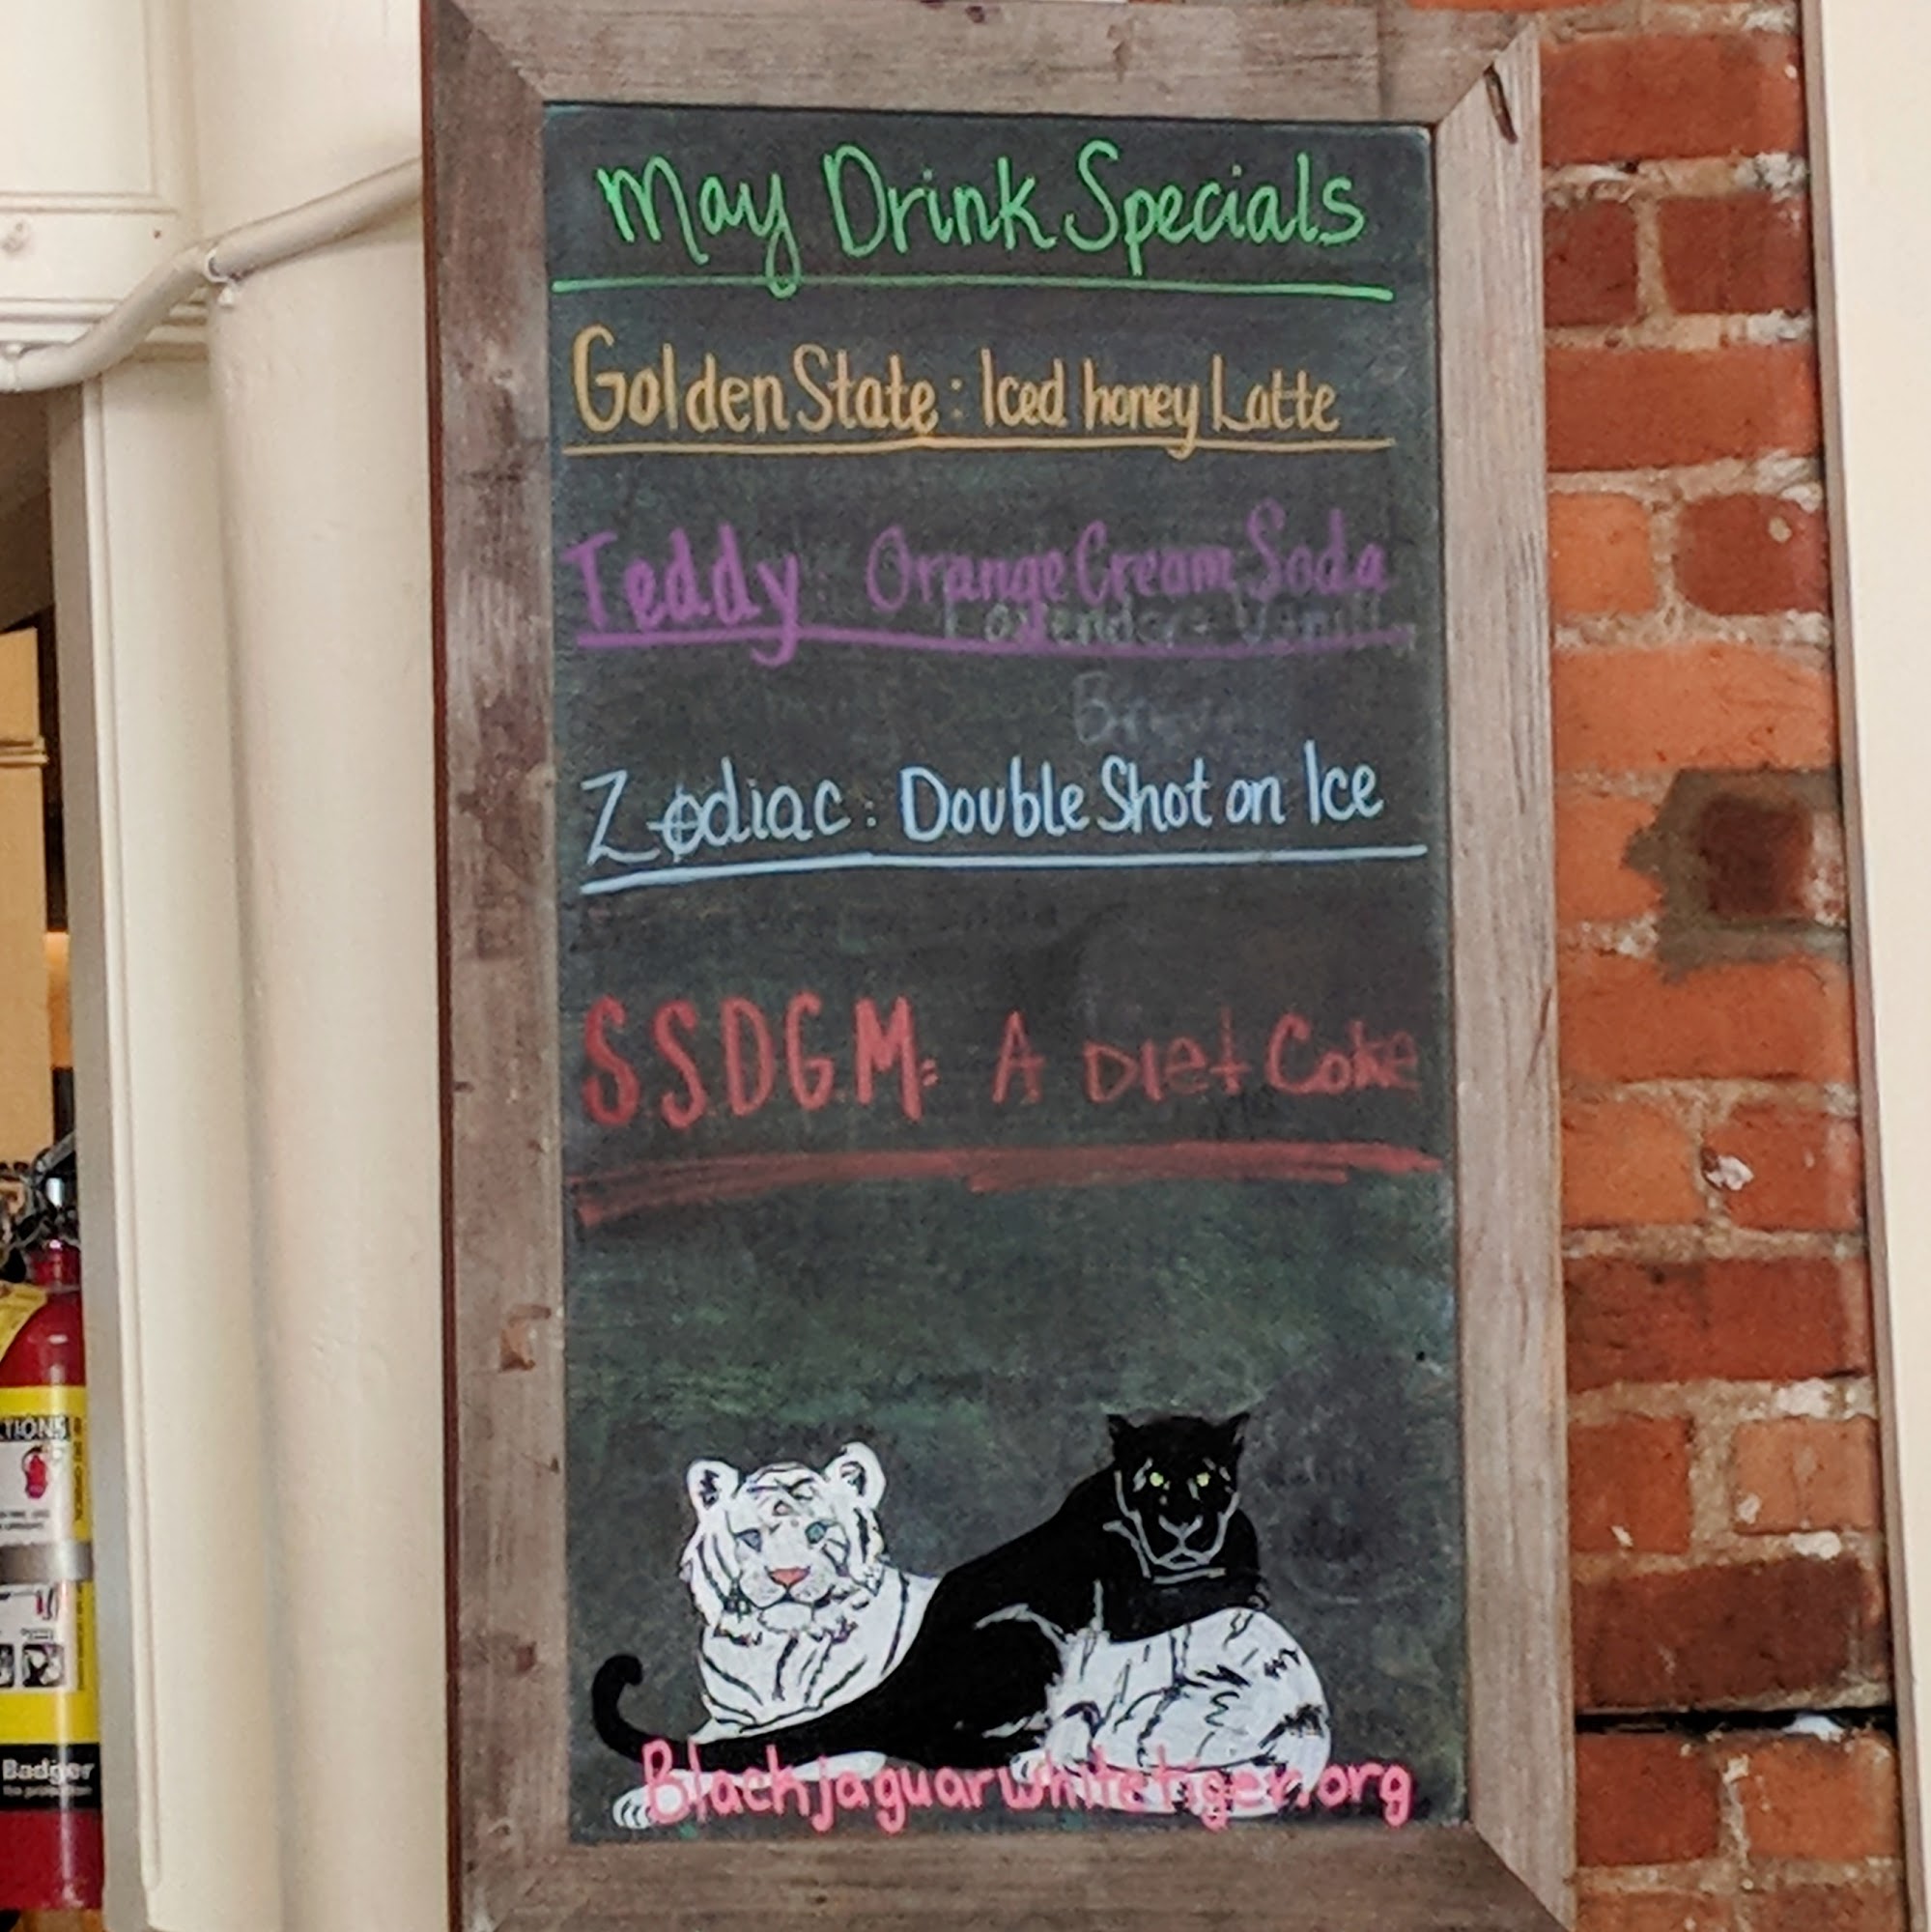 May Drink Specials
Golden State: Iced honey Latte
Teddy: Orange Cream Soda
Zodiac: Double Shot on Ice
S.S.D.G.M: A Diet Coke
Blackjaguarwhitetiger.org
CTIONS
Badger
fire protection